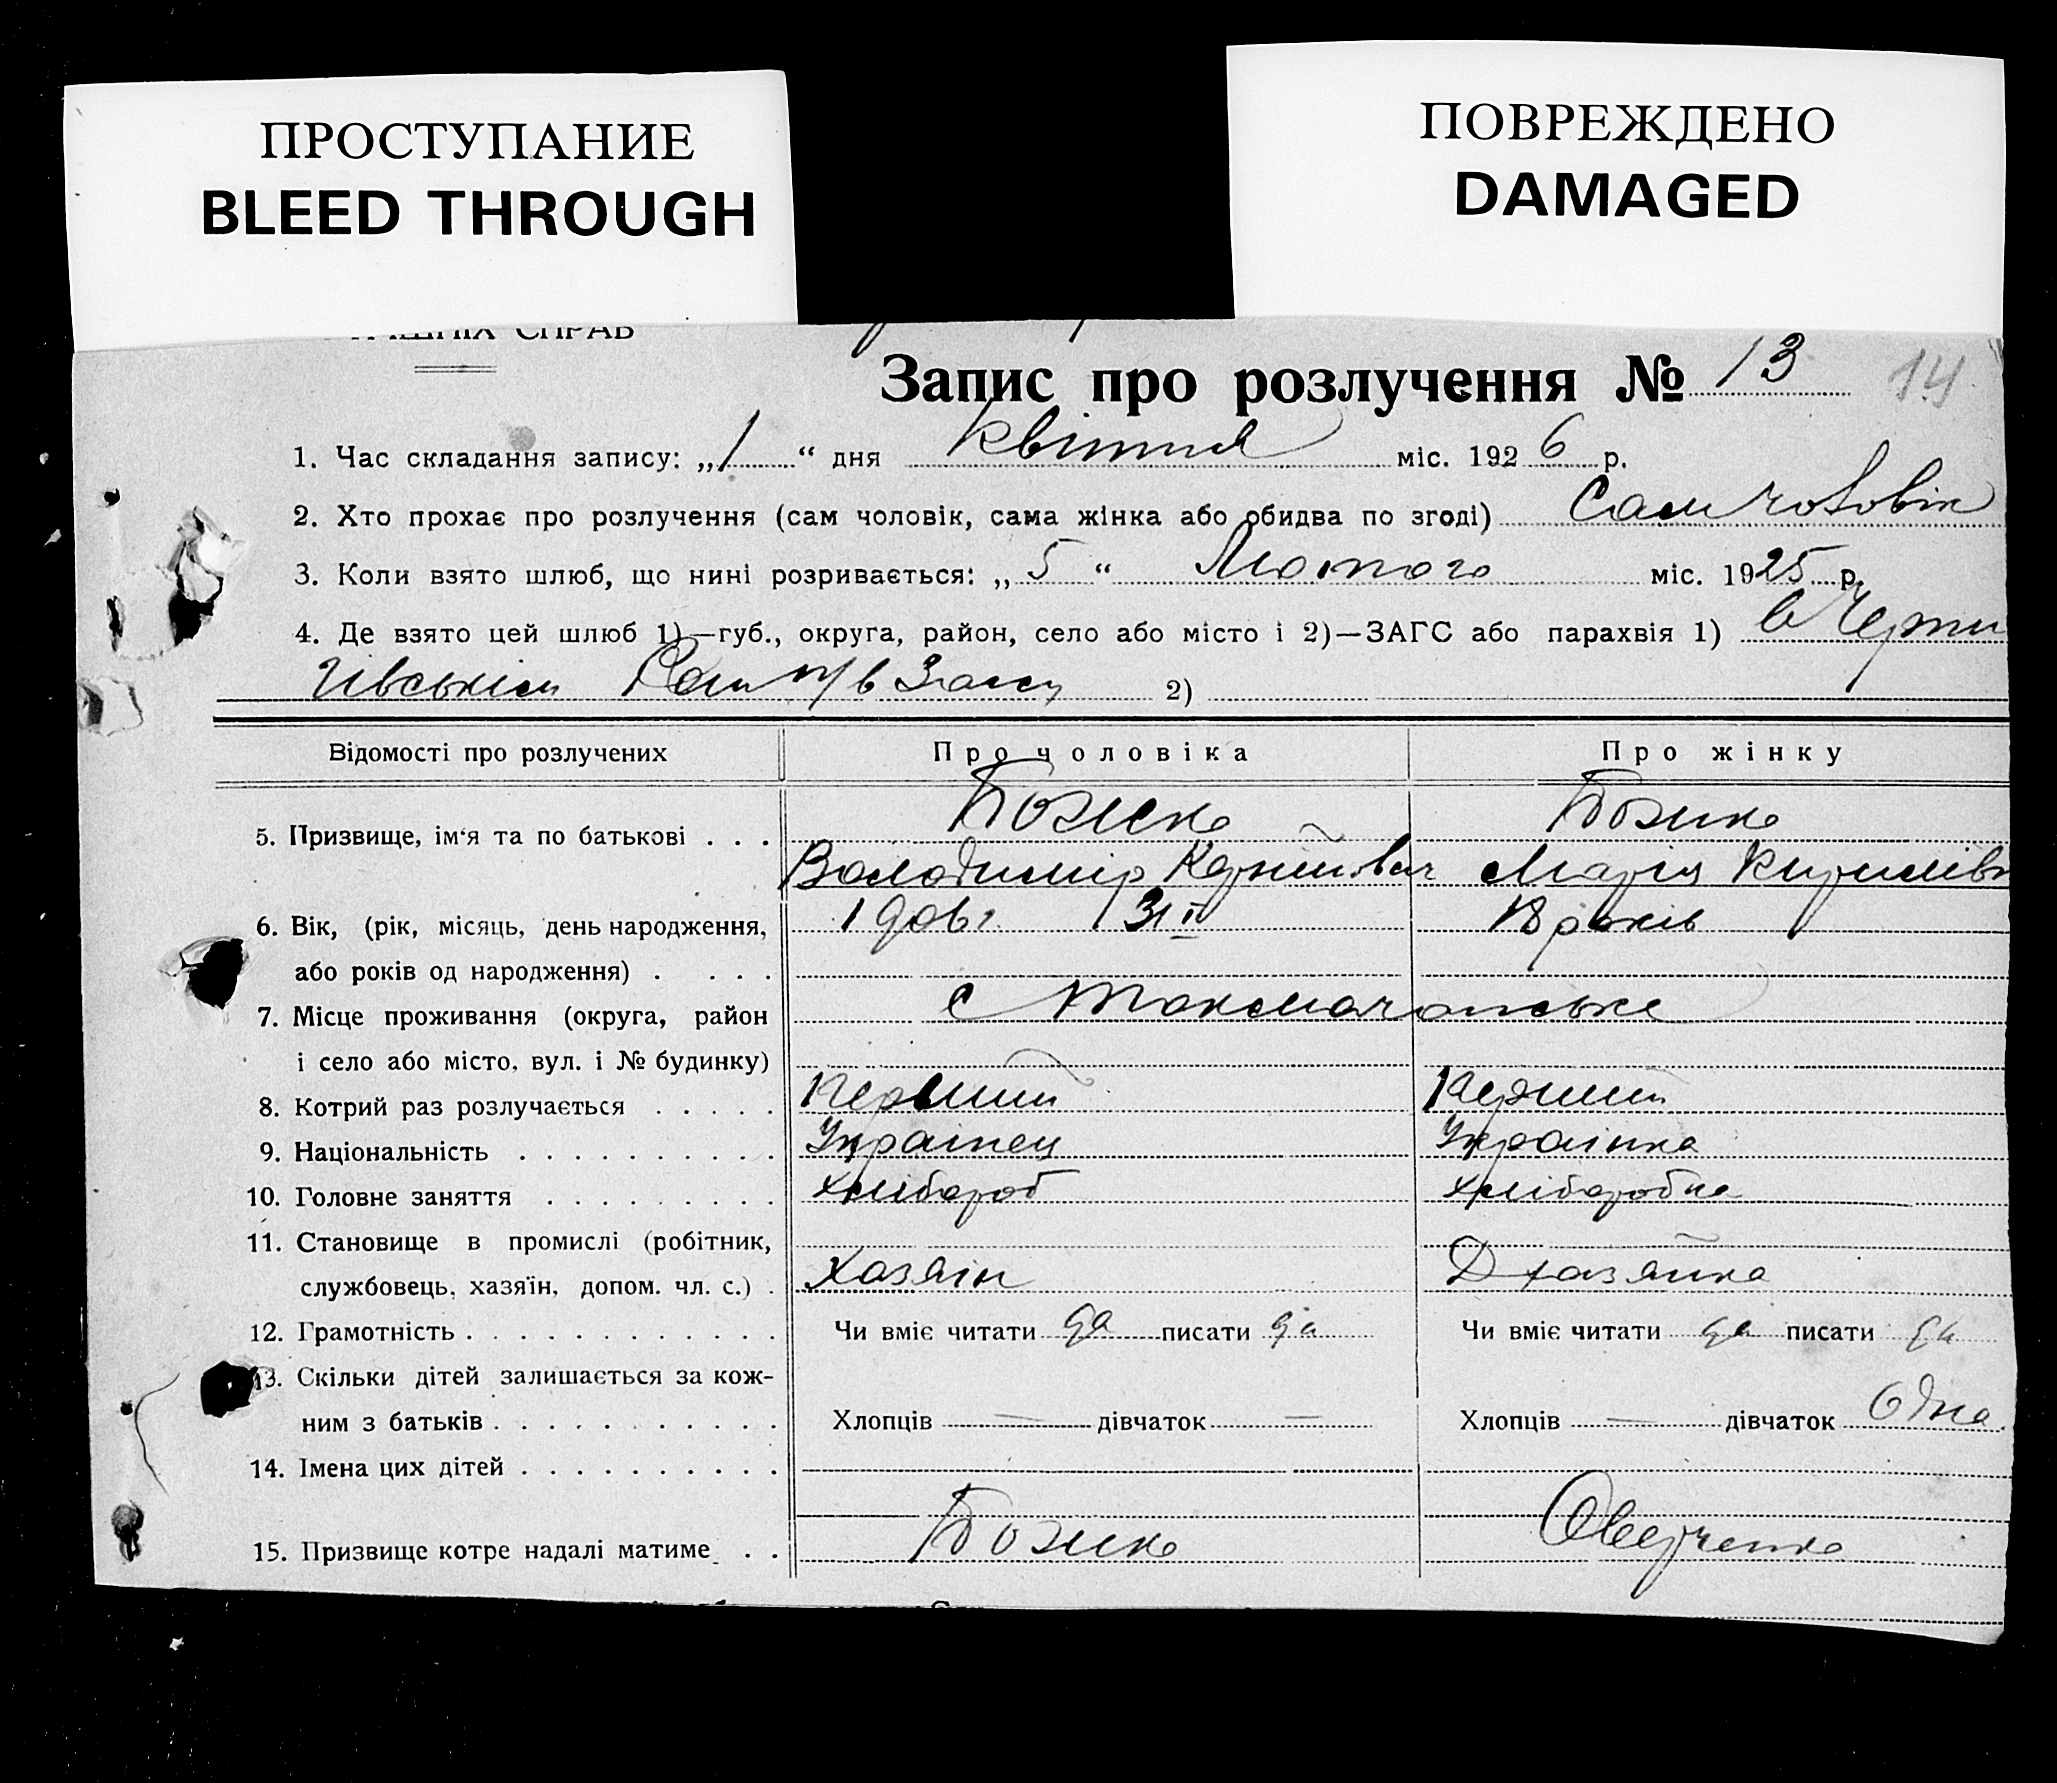 ПРОСТУПАНИЕ
BLEED THROUGH
ПОВРЕЖДЕНО
DAMAGED
СПРАВ
Запис про розлучення № 13 14
1. Час складання запису: „1“ дня квітня міс. 1926 р.
2. Хто прохає про розлучення (сам чоловік, сама жінка або обидва по згоді) Сам чоловік
3. Коли взято шлюб, що нині розривається: „5“ Лютого міс. 1925 р.
4. Де взято цей шлюб 1)—губ., округа, район, село або місто і 2)—ЗАГС або парахвія 1) в
2)
Відомості про розлучених Про чоловіка Про жінку
5. Призвище, ім‘я та по батькові . . . Божко Божко
Володимір Марія
6. Вік, (рік, місяць, день народження, 1906 г. 18 років
або років од народження) . . . .
7. Місце проживання (округа, район с
і село або місто, вул. і № будинку)
8. Котрий раз розлучається . . . . . Первий Первий
9. Національність . . . . . . . . . . Українец Українка
10. Головне заняття . . . . . . . . . хлібороб хліборобка
11. Становище в промислі (робітник,
службовець, хазяїн, допом. чл. с.) . Хазяін Д хазяйка
12. Грамотність . . . . . . . . . . . . Чи вміє читати да писати да Чи вміє читати да писати да
13. Скільки дітей залишається за кож-
ним з батьків . . . . . . . . . . . Хлопців — дівчаток — Хлопців — дівчаток Одна
14. Імена цих дітей . . . . . . . . . .
15. Призвище котре надалі матиме . . Божко Оверченко